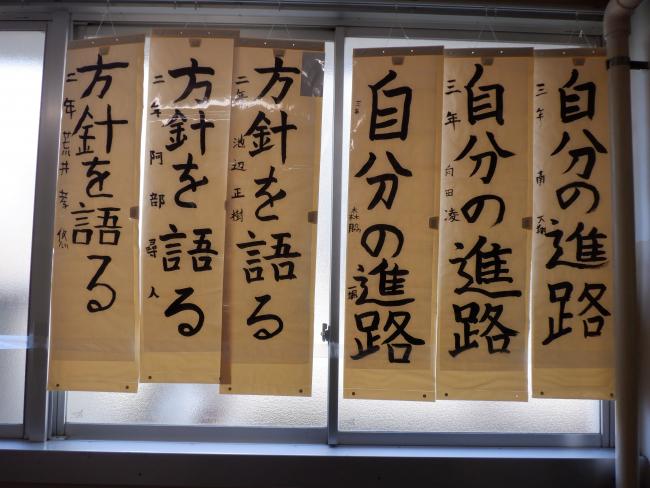 自分の進路
三年 南
自分の進路
三年 向田 凌
自分の進路
三年 森脇
方針を語る
二年 池辺 正樹
方針を語る
二年 阿部 尋人
方針を語る
二年 荒井 孝